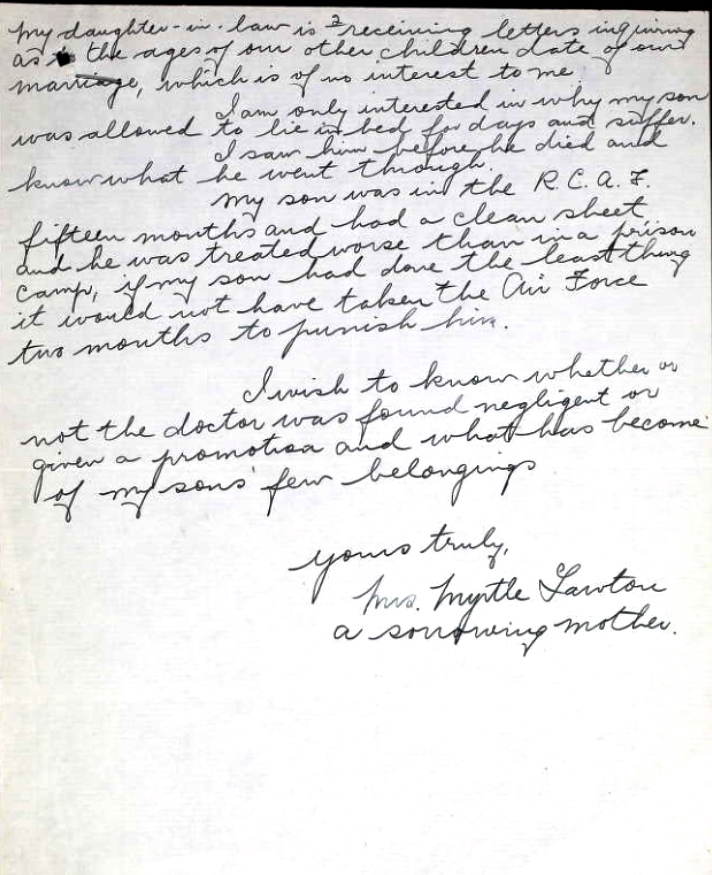 my daughter-in-law is receiving letters inquiring
as to the ages of our other children date of our
marriage, which is of no interest to me
I am only interested in why my son
was allowed to lie in bed for days and suffer.
I saw him before he died and
know what he went through.
my son was in the R.C.A.F.
fifteen months and had a clean sheet
and he was treated worse than in a prison
camp, if my son had done the least thing
it would not have taken the Air Force
two months to punish him.
I wish to know whether or
not the doctor was found negligent or
given a promotion and what has become
of my sons' few belongings
yours truly,
Mrs. Myrtle Lawton
a sorrowing mother.